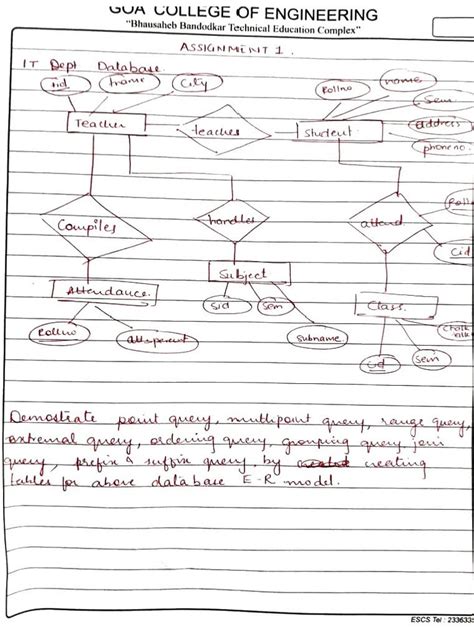 GOA COLLEGE OF ENGINEERING
"Bhausaheb Bandodkar Technical Education Complex"
ASSIGNMENT 1.
IT Dept Database.
tname
City
Rollno
name
Sem
address
phone no.
Teacher
teaches
Student
Compiles
handles
attend
Rolln
Cid
Attendance.
Subject
Class.
Rollno
sid
sem
subname
sem
Demostrate point query, multipoint query, range query,
extremal query, ordering query, grouping query, join
query, prefix & suffix query, by creating
tables for above database E-R model.
ESCS Tel : 233633